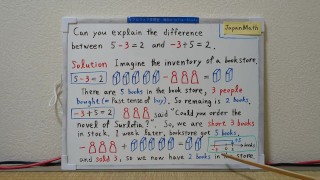 JapanMath
Can you explain the difference
between 5-3=2 and -3+5=2.
Solution Imagine the inventory of a bookstore.
5-3=2 - =
There are 5 books in the book store, 3 people
bought (= Past tense of buy), So remaing is 2 books.
-3+5=2 said "Could you order the
novel of ?". So, we are short 3 books
in stock. 1 week later, bookstore got 5 books,
- + =
and sold 3, so we now have 2 books in the store.